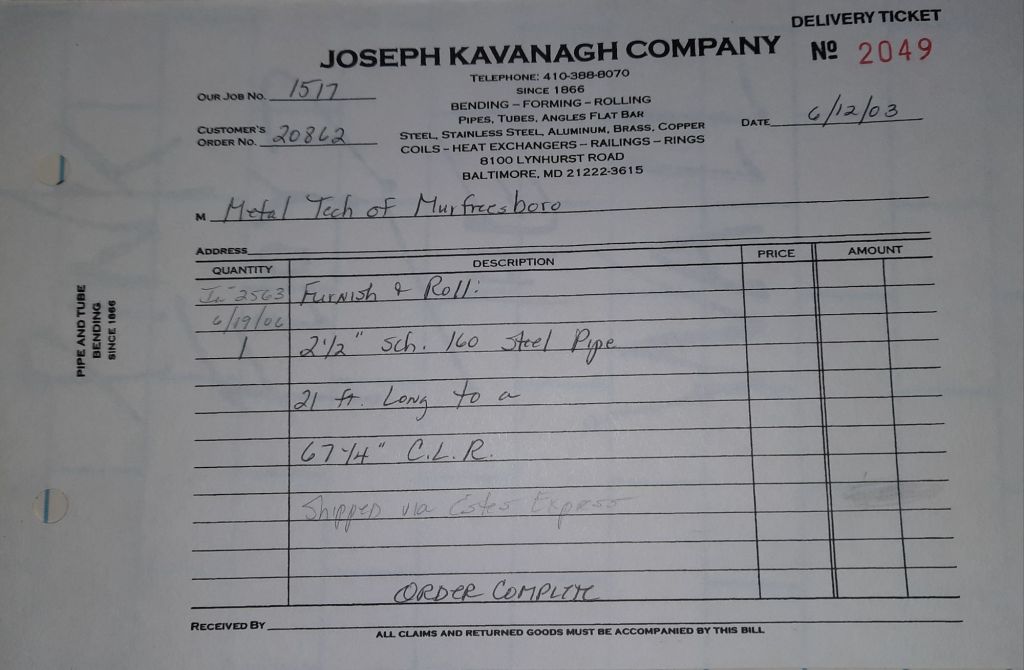 DELIVERY TICKET
JOSEPH KAVANAGH COMPANY
Nº 2049
TELEPHONE: 410-388-8070
SINCE 1866
BENDING – FORMING – ROLLING
PIPES, TUBES, ANGLES FLAT BAR
STEEL, STAINLESS STEEL, ALUMINUM, BRASS, COPPER
COILS – HEAT EXCHANGERS – RAILINGS – RINGS
8100 LYNHURST ROAD
BALTIMORE, MD 21222-3615
OUR JOB NO. 1517
CUSTOMER'S
ORDER NO. 20862
DATE 6/12/03
M Metal Tech of Murfreesboro
ADDRESS
QUANTITY DESCRIPTION PRICE AMOUNT
2563 Furnish & Roll:
1 2 1/2" sch. 160 Steel Pipe
21 ft. Long to a
67 1/4" C.L.R.
Shipped via Estes Express
ORDER COMPLETE
RECEIVED BY
ALL CLAIMS AND RETURNED GOODS MUST BE ACCOMPANIED BY THIS BILL
PIPE AND TUBE
BENDING
SINCE 1866